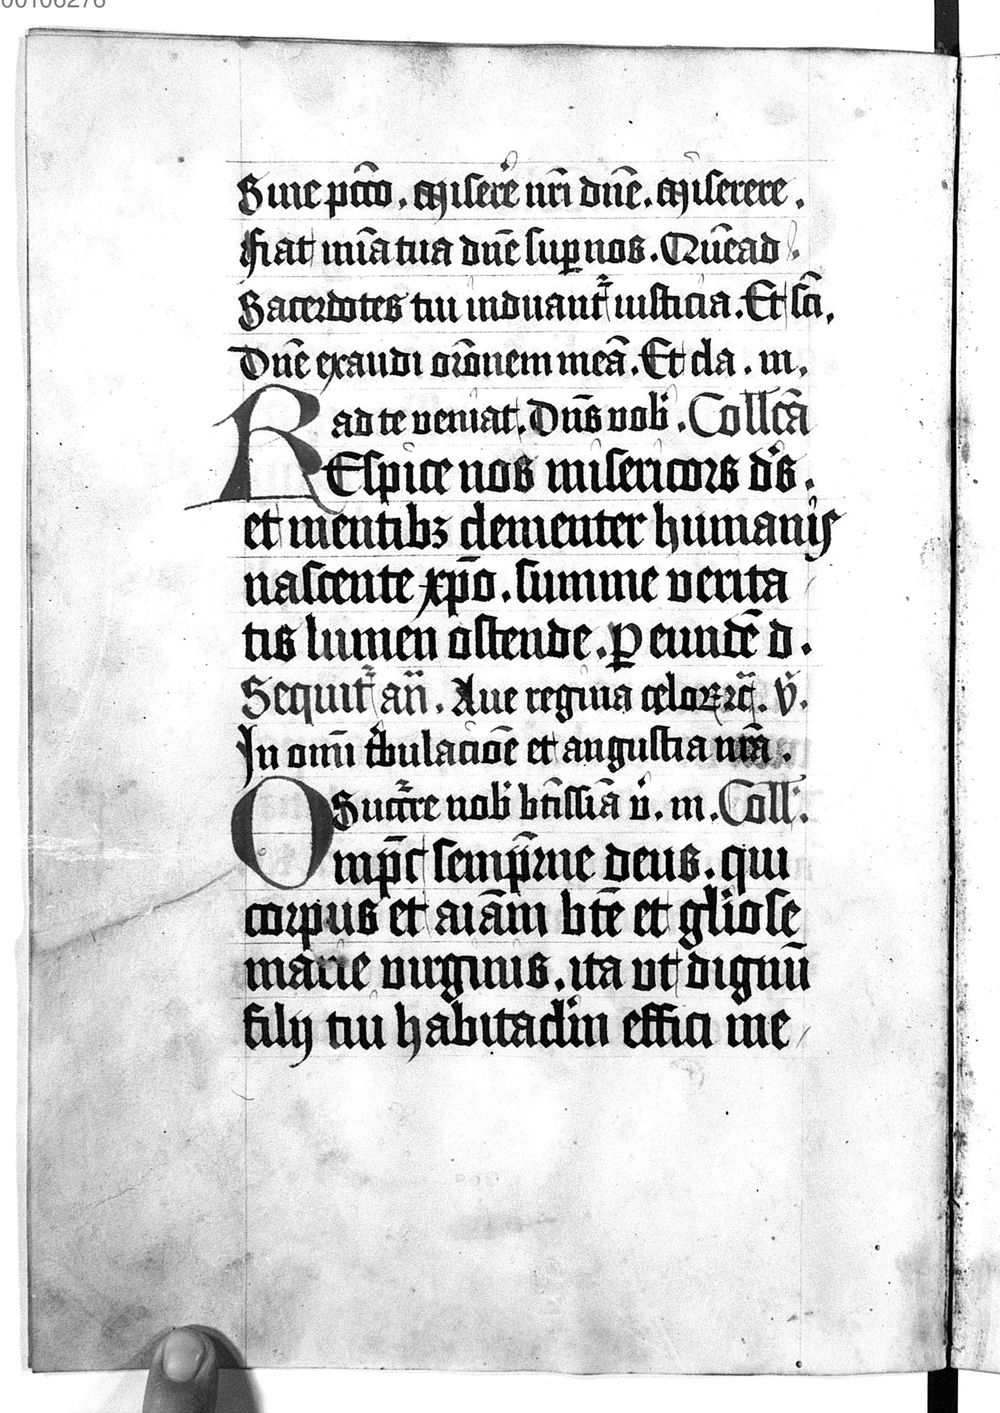 00106276
Sine pctō. Miserē nr̄i dn̄e. Miserere.
fiat mīa tua dn̄e sup nos. Quēad
Sacerdotes tui induant᷑ iusticia. Et sc̄i,
Dn̄e exaudi orōnem meā. Et cla. m.
ad te veniat. Dn̄s vob. Collcā
REspice nos misericors ds.
et mentibꝫ clementer humanis
nascente xp̄o. summe verita
tis lumen ostende. ꝑ eundē d.
Sequit᷑ an̄. Aue regina celoꝝ. v̄.
In om̄i tbulacioē et angustia nrā.
Succrre nob btīssīa v̄. m. Coll.
Omp̄s semp̄rne deus. qui
corpus et aīam btē et gliose
marie virginis. ita vt dignū
filij tui habitaclm effici me